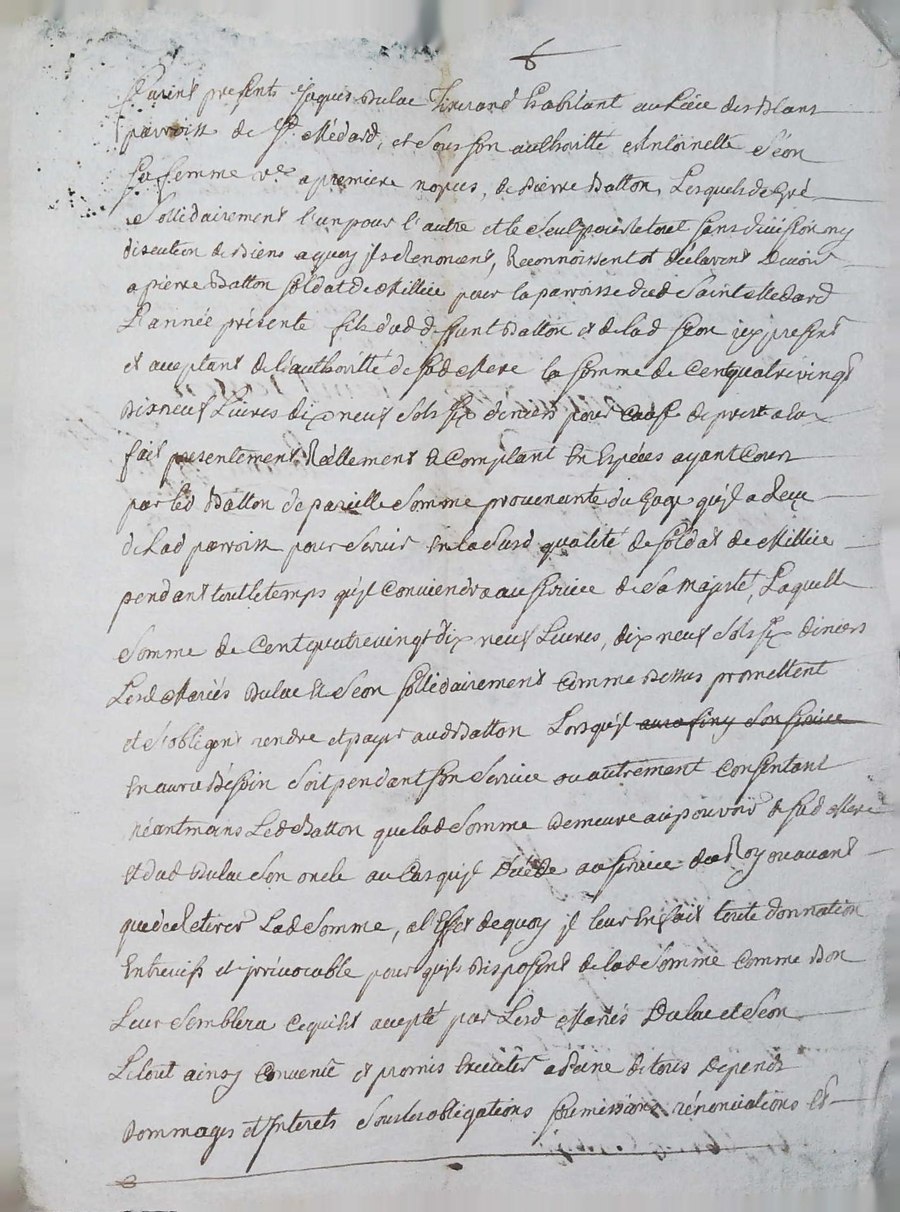 6
furent presents Jaques Dulac Tisserand habitant au Lieu des Blans
parroisse de St. Médard, et sous son authorité Antoinette Séon
sa femme ve. a premiere nopces, de Pierre Batton, Lesquels de gré
Sollidairement l'un pour l'autre et le seul pour le tout sans division ny
discution de Biens a quoy ils Renoncent, Reconnoissent et déclarent Devoir
a pierre Batton soldat de Millice pour la parroisse dud. Saint Medard
L'année présente fils dud. deffunt Batton et de lad. Seon icy present
et acceptant de L'authorité de sad. Mere la somme de Cent quatrevingt
Dixneuf Livres dixneuf sols six deniers pour cause de prest a eux
fait presentement Réellement et Comptant En Espéces ayant Cours
par led. Batton de pareille Somme provenante du Gage qu'il a Reçu
de Lad. parroisse pour servir En lasusd. qualité de soldat de Millice
pendant tout le temps qu'il conviendra au service de sa Majesté, Laquelle
Somme de Cent quatrevingt dix neuf Livres, dix neuf sols six deniers
Lesd. Mariés Dulac et Séon sollidairement comme Dessus promettent
et s'obligent rendre et payer aud. Batton Lorsqu'il aura finy son service
En aura Bésoin soit pendant son service ou autrement consentant
néantmoins Led. Batton que lad. somme Demeure au pouvoir de sad. Mere
et dud. Dulac son oncle au Cas qu'il Décéde au service du Roy ou avant
que de Retirer Lad. Somme, a l'Effet de quoy il leur En fait toute donnation
Entrevifs et irrévocable pour qu'ils Disposent de lad. somme comme Bon
Leur Semblera ce qui Est accepté par Lesd. Mariés Dulac et Séon
Le tout ainsy convenu et promis Executer a Peine de tous depends
Dommages et Interets sous les obligations soumissions rénonciations et